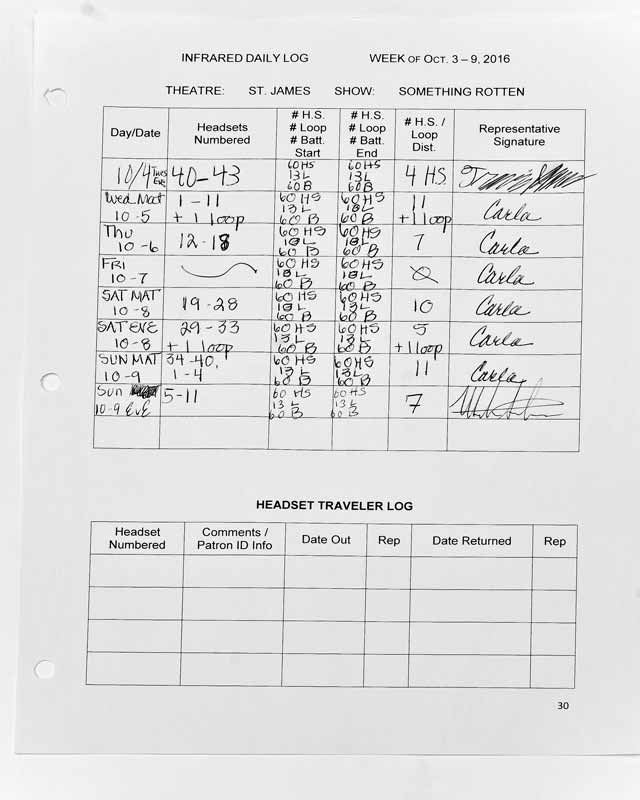 INFRARED DAILY LOG WEEK OF OCT. 3 – 9, 2016
THEATRE: ST. JAMES SHOW: SOMETHING ROTTEN
Day/Date
Headsets
Numbered
# H.S.
# Loop
# Batt.
Start
# H.S.
# Loop
# Batt.
End
# H.S. /
Loop
Dist.
Representative
Signature
10/4 Tues Eve
40-43
60 HS
13 L
60 B
60 HS
13 L
60 B
4 H.S.
Wed Mat
10-5
1-11
+ 1 loop
60 HS
13 L
60 B
60 HS
13 L
60 B
11
+ 1 loop
Carla
Thu
10-6
12-18
60 HS
13 L
60 B
60 HS
13 L
60 B
7
Carla
FRI
10-7
60 HS
13 L
60 B
60 HS
13 L
60 B
0
Carla
SAT MAT
10-8
19-28
60 HS
13 L
60 B
60 HS
13 L
60 B
10
Carla
SAT EVE
10-8
29-33
+ 1 loop
60 HS
13 L
60 B
60 HS
13 L
60 B
5
+ 1 loop
Carla
SUN MAT
10-9
34-40,
1-4
60 HS
13 L
60 B
60 HS
13 L
60 B
11
Carla
Sun
10-9 EVE
5-11
60 HS
13 L
60 B
60 HS
13 L
60 B
7
HEADSET TRAVELER LOG
Headset
Numbered
Comments /
Patron ID Info
Date Out
Rep
Date Returned
Rep
30